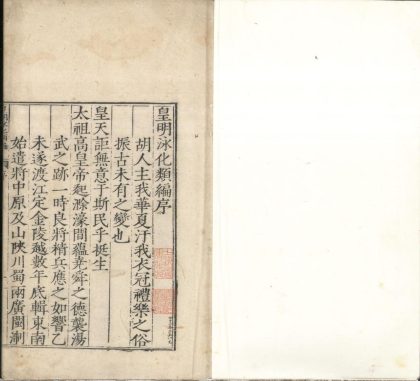 皇明泳化類編序
胡人主我華夏汙我衣冠禮樂之俗
振古未有之變也
皇天詎無意于斯民乎挺生
太祖高皇帝起滁濠間蘊堯舜之德襲湯
武之跡一時良將精兵應之如響乙
未遂渡江定金陵越數年底輯東南
始遣將中原及山陜川蜀兩廣閩浙